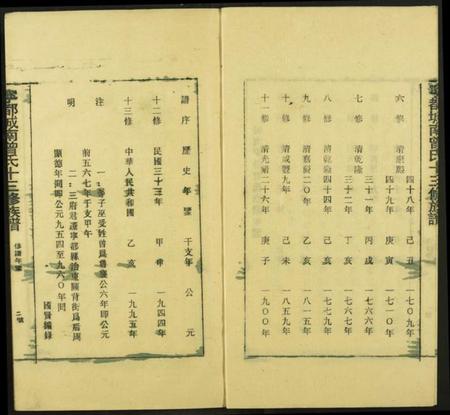 寧都城南曾氏十三修族譜
六修 清康熙 四十八年 己丑 一七〇九年
四十九年 庚寅 一七一〇年
七修 清乾隆 三十一年 丙戌 一七六六年
三十二年 丁亥 一七六七年
八修 清乾隆四十四年 己亥 一七七九年
九修 清嘉慶二〇年 乙亥 一八一五年
十修 清咸豐九年 己未 一八五九年
十一修 清光緒二十六年 庚子 一九〇〇年
譜序 歷史年鑒 干支年 公元
十二修 民國三十三年 甲申 一九四四年
十三修 中華人民共和國 乙亥 一九九五年
注 一：鄫子巫受姓曾爲魯襄公六年即公元
前五六七年于支甲午
明 二：三府君遷寧都縣治東關背街爲後周
顯德年間即公元九五四至九六〇年間
國賢編錄
寧都城南曾氏十三修族譜
修譜年鑒
二號